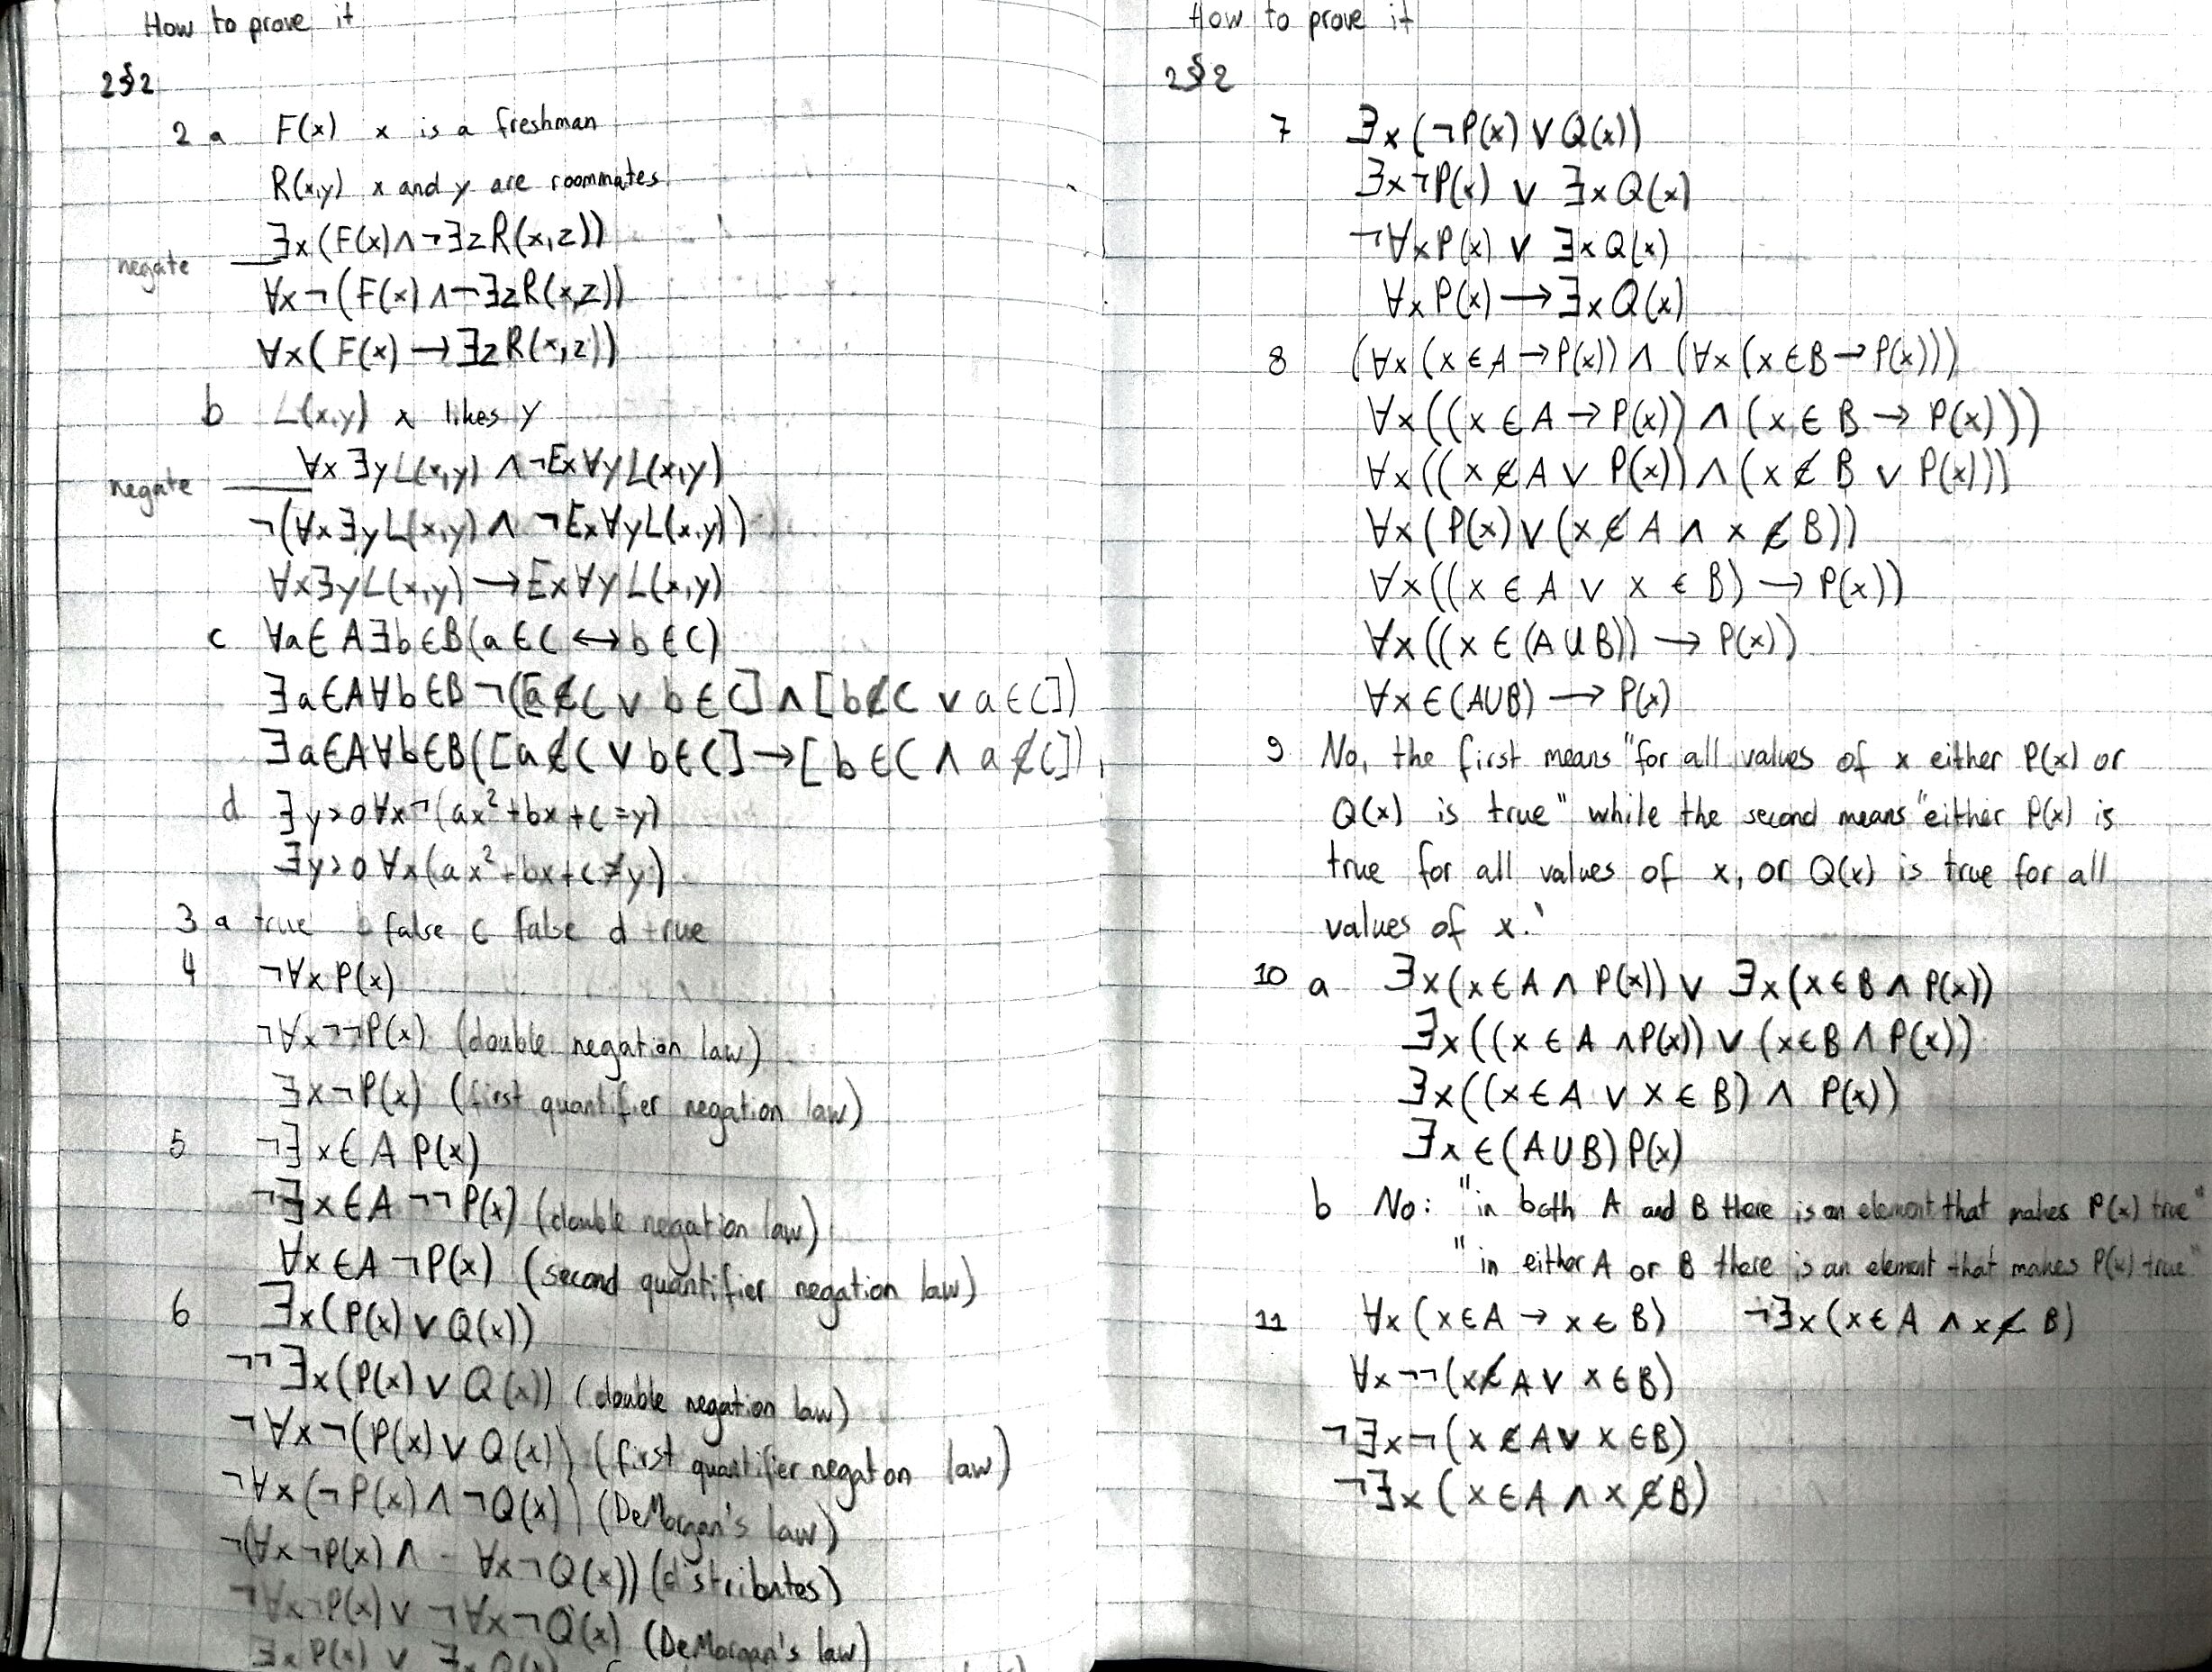 How to prove it
2§2
2 a F(x) x is a freshman
R(x,y) x and y are roommates
∃x(F(x)∧¬∃zR(x,z))
negate
∀x¬(F(x)∧¬∃zR(x,z))
∀x(F(x)→∃zR(x,z))
b L(x,y) x likes y
∀x∃yL(x,y) ∧ ¬Ex∀yL(x,y)
negate
¬(∀x∃yL(x,y) ∧ ¬Ex∀yL(x,y))
∀x∃yL(x,y) → Ex∀yL(x,y)
c ∀a∈A∃b∈B(a∈C ↔ b∈C)
∃a∈A∀b∈B¬([a∉C ∨ b∈C] ∧ [b∉C ∨ a∈C])
∃a∈A∀b∈B([a∉C ∨ b∈C] → [b∈C ∧ a∉C])
d ∃y>0∀x¬(ax²+bx+c=y)
∃y>0∀x(ax²+bx+c≠y)
3 a true b false c false d true
4 ¬∀xP(x)
¬∀x¬¬P(x) (double negation law)
∃x¬P(x) (first quantifier negation law)
5 ¬∃x∈A P(x)
¬∃x∈A ¬¬P(x) (double negation law)
∀x∈A ¬P(x) (second quantifier negation law)
6 ∃x(P(x) ∨ Q(x))
¬¬∃x(P(x) ∨ Q(x)) (double negation law)
¬∀x¬(P(x) ∨ Q(x)) (first quantifier negation law)
¬∀x(¬P(x) ∧ ¬Q(x)) (DeMorgan's law)
¬(∀x¬P(x) ∧ ∀x¬Q(x)) (distributes)
¬∀x¬P(x) ∨ ¬∀x¬Q(x) (DeMorgan's law)
∃x P(x) ∨ ∃x Q(x)
How to prove it
2§2
7 ∃x(¬P(x) ∨ Q(x))
∃x¬P(x) ∨ ∃xQ(x)
¬∀xP(x) ∨ ∃xQ(x)
∀xP(x) → ∃xQ(x)
8 (∀x(x∈A→P(x)) ∧ (∀x(x∈B→P(x)))
∀x((x∈A→P(x)) ∧ (x∈B→P(x)))
∀x((x∉A ∨ P(x)) ∧ (x∉B ∨ P(x)))
∀x(P(x) ∨ (x∉A ∧ x∉B))
∀x((x∈A ∨ x∈B) → P(x))
∀x((x∈(A∪B)) → P(x))
∀x∈(A∪B) → P(x)
9 No, the first means "for all values of x either P(x) or
Q(x) is true" while the second means "either P(x) is
true for all values of x, or Q(x) is true for all
values of x."
10 a ∃x(x∈A ∧ P(x)) ∨ ∃x(x∈B ∧ P(x))
∃x((x∈A ∧P(x)) ∨ (x∈B ∧ P(x))
∃x((x∈A ∨ x∈B) ∧ P(x))
∃x∈(A∪B)P(x)
b No: "in both A and B there is an element that makes P(x) true"
"in either A or B there is an element that makes P(x) true"
11 ∀x(x∈A → x∈B) ¬∃x(x∈A ∧ x∉B)
∀x¬¬(x∉A ∨ x∈B)
¬∃x¬(x∉A ∨ x∈B)
¬∃x(x∈A ∧ x∉B)